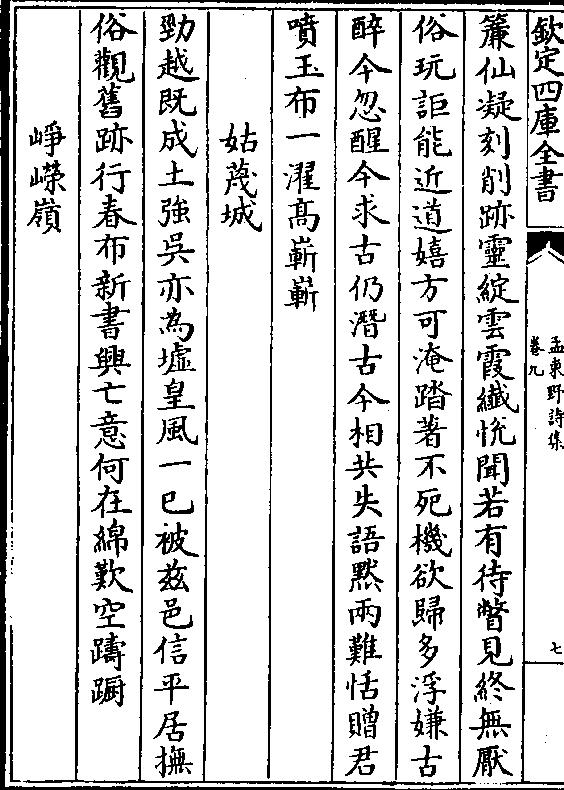 欽定四庫全書
孟東野詩集
卷九
七
簾仙凝刻削跡靈綻雲霞纎恱聞若有待瞥見終無厭
俗玩詎能近道嬉方可淹踏著不死機欲歸多浮嫌古
醉今忽醒今求古仍潛古今相共失語黙兩難恬贈君
噴玉布一濯髙嶄嶄
姑蔑城
勁越既成土強吳亦為墟皇風一已被兹邑信平居撫
俗觀舊跡行春布新書興亡意何在綿歎空躊蹰
崢嶸嶺